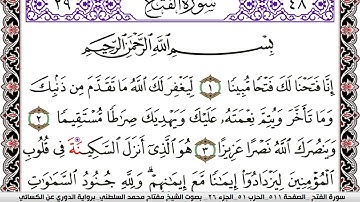 ٢٩ سورة الفتح ٤٨
بِسْمِ اللَّهِ الرَّحْمَٰنِ الرَّحِيمِ
إِنَّا فَتَحْنَا لَكَ فَتْحًا مُبِينًا ١ لِيَغْفِرَ لَكَ اللَّهُ مَا تَقَدَّمَ مِن ذَنۢبِكَ
وَمَا تَأَخَّرَ وَيُتِمَّ نِعْمَتَهُ عَلَيْكَ وَيَهْدِيَكَ صِرَٰطًا مُّسْتَقِيمًا ٢
وَيَنصُرَكَ اللَّهُ نَصْرًا عَزِيزًا ٣ هُوَ الَّذِي أَنزَلَ السَّكِينَةَ فِي قُلُوبِ
الْمُؤْمِنِينَ لِيَزْدَادُوٓا۟ إِيمَٰنًا مَّعَ إِيمَٰنِهِمْ وَلِلَّهِ جُنُودُ السَّمَٰوَٰتِ
سورة الفتح الصفحة ٥١١ الحزب ٥١ الجزء ٢٦ بصوت الشيخ مفتاح محمد السلطني برواية الدوري عن الكسائي